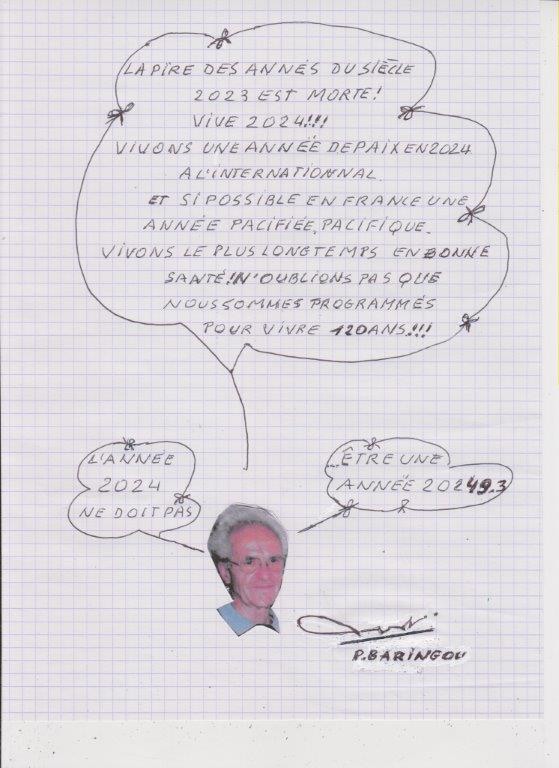 LA PIRE DES ANNÉS DU SIÈCLE
2023 EST MORTE!
VIVE 2024!!!
VIVONS UNE ANNÉE DE PAIX EN 2024
A L'INTERNATIONNAL.
ET SI POSSIBLE EN FRANCE UNE
ANNÉE PACIFIÉE, PACIFIQUE.
VIVONS LE PLUS LONGTEMPS EN BONNE
SANTÉ! N'OUBLIONS PAS QUE
NOUS SOMMES PROGRAMMÉS
POUR VIVRE 120 ANS.!!!
L'ANNÉE
2024
NE DOIT PAS
...ÊTRE UNE
ANNÉE 20249.3
P. BARINGOU